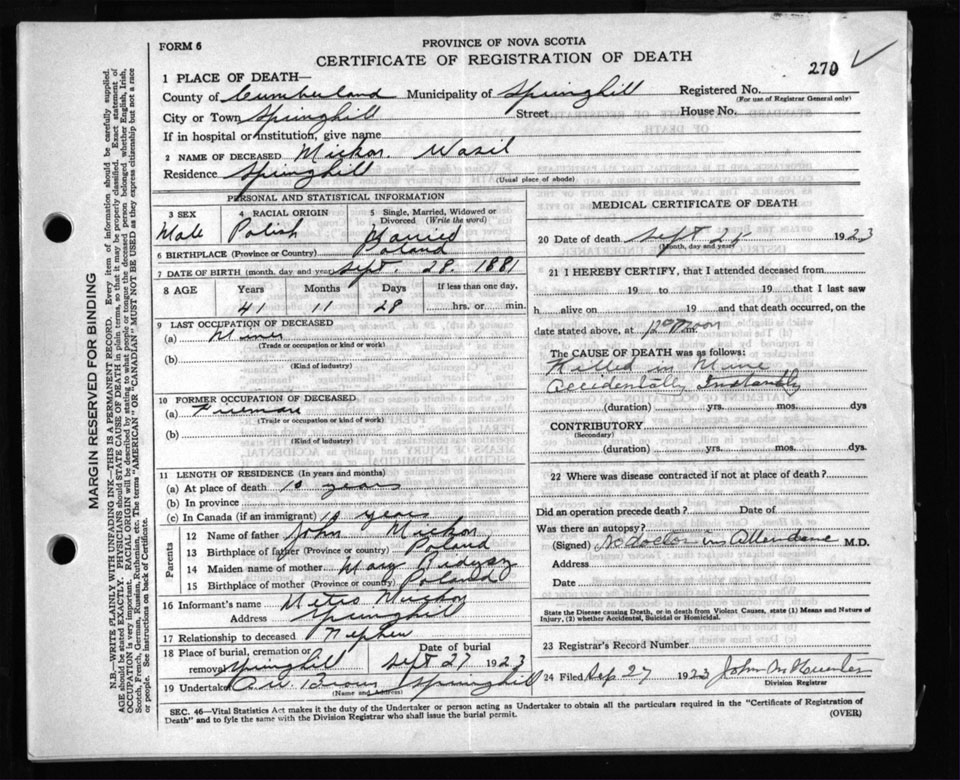 FORM 6
PROVINCE OF NOVA SCOTIA
CERTIFICATE OF REGISTRATION OF DEATH
270
1 PLACE OF DEATH—
County of Cumberland Municipality of Springhill Registered No.
(For use of Registrar General only)
City or Town Springhill Street House No.
If in hospital or institution, give name
2 NAME OF DECEASED Mickor. Wasil
Residence Springhill
(Usual place of abode)
PERSONAL AND STATISTICAL INFORMATION
3 SEX Male
4 RACIAL ORIGIN Polish
5 Single, Married, Widowed or Divorced (Write the word) Married
6 BIRTHPLACE (Province or Country) Poland
7 DATE OF BIRTH (month, day and year) Sept. 28. 1881
8 AGE Years Months Days If less than one day,
41 11 28 hrs. or min.
9 LAST OCCUPATION OF DECEASED
(a) Miner
(Trade or occupation or kind of work)
(b)
(Kind of industry)
10 FORMER OCCUPATION OF DECEASED
(a) Fireman
(Trade or occupation or kind of work)
(b)
(Kind of industry)
11 LENGTH OF RESIDENCE (In years and months)
(a) At place of death 10 years
(b) In province
(c) In Canada (if an immigrant) 10 years
Parents
12 Name of father John Mickor
13 Birthplace of father (Province or country) Poland
14 Maiden name of mother Mary
15 Birthplace of mother (Province or country) Poland
16 Informant's name Metro Mickor
Address Springhill
17 Relationship to deceased Nephew
18 Place of burial, cremation or removal Springhill
Date of burial Sept 27 1923
19 Undertaker Brown Springhill
(Name and Address)
MEDICAL CERTIFICATE OF DEATH
20 Date of death Sept 1923
(Month, day and year)
21 I HEREBY CERTIFY, that I attended deceased from
19 to 19 that I last saw
h alive on 19 and that death occurred, on the
date stated above, at 12 noon
The CAUSE OF DEATH was as follows:
Killed in Mine
Accidentally Instantly
(duration) yrs. mos. dys
CONTRIBUTORY
(Secondary)
(duration) yrs. mos. dys
22 Where was disease contracted if not at place of death?
Did an operation precede death? Date of
Was there an autopsy?
(Signed) No doctor in Attendance M.D.
Address
Date
State the Disease causing Death, or in death from Violent Causes, state (1) Means and Nature of
Injury, (2) whether Accidental, Suicidal or Homicidal.
23 Registrar's Record Number
24 Filed Sep 27 1923 John
Division Registrar
SEC. 46—Vital Statistics Act makes it the duty of the Undertaker or person acting as Undertaker to obtain all the particulars required in the "Certificate of Registration of
Death" and to fyle the same with the Division Registrar who shall issue the burial permit.
(OVER)
MARGIN RESERVED FOR BINDING
N.B.—WRITE PLAINLY WITH UNFADING INK—THIS IS A PERMANENT RECORD. Every item of information should be carefully supplied.
AGE should be stated EXACTLY. PHYSICIANS should STATE CAUSE OF DEATH in plain terms, so that it may be properly classified. Exact statement of
OCCUPATION is very important. RACIAL ORIGIN will be described by stating to what people or tongue the deceased person belonged whether English, Irish,
Scotch, French, German, Russian, Ruthenian, etc. The terms "AMERICAN" OR "CANADIAN" MUST NOT BE USED as they express citizenship but not a race
or people. See instructions on back of Certificate.